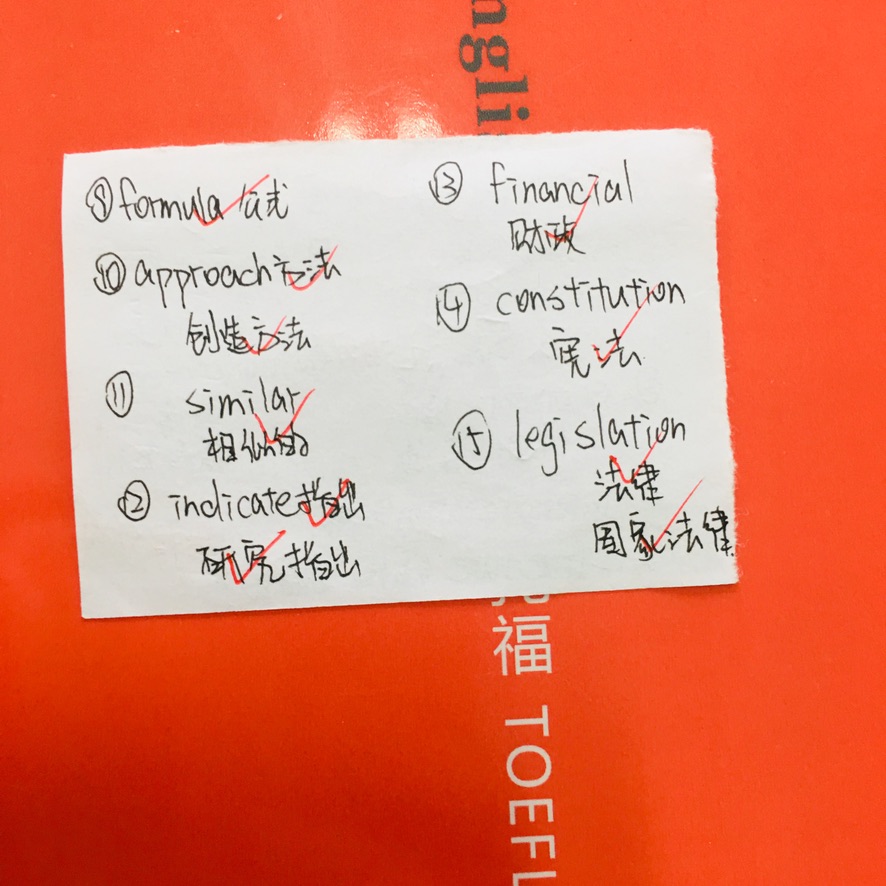 nglis
⑨ formula 公式
⑩ approach 方法
创造方法
⑪ similar
相似的
⑫ indicate 指出
研究指出
⑬ financial
财政
⑭ constitution
宪法
⑮ legislation
法律
国家法律
福 TOEFL